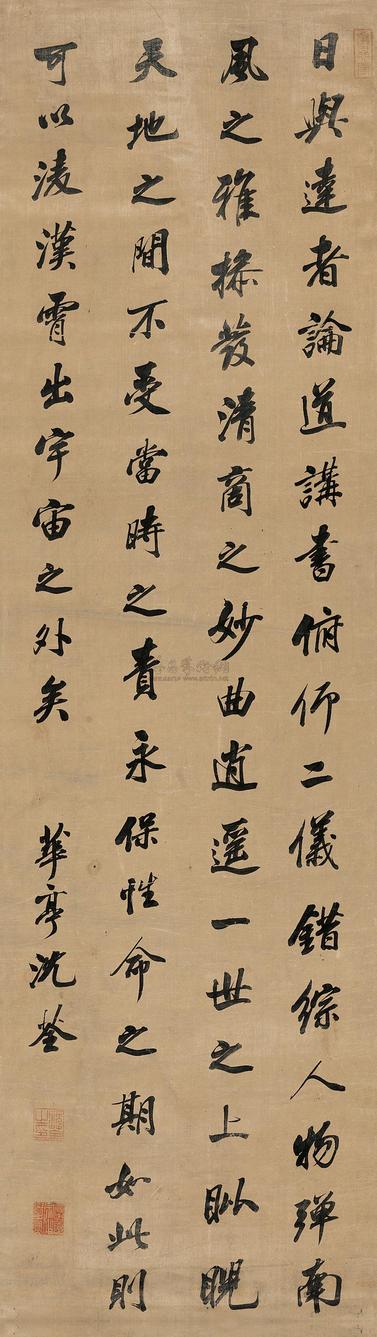 日與達者論道講書俯仰二儀錯綜人物彈南
風之雅操發清商之妙曲逍遥一世之上睥睨
天地之間不受當時之責永保性命之期如此則
可以淩漢霄出宇宙之外矣
華亭沈荃